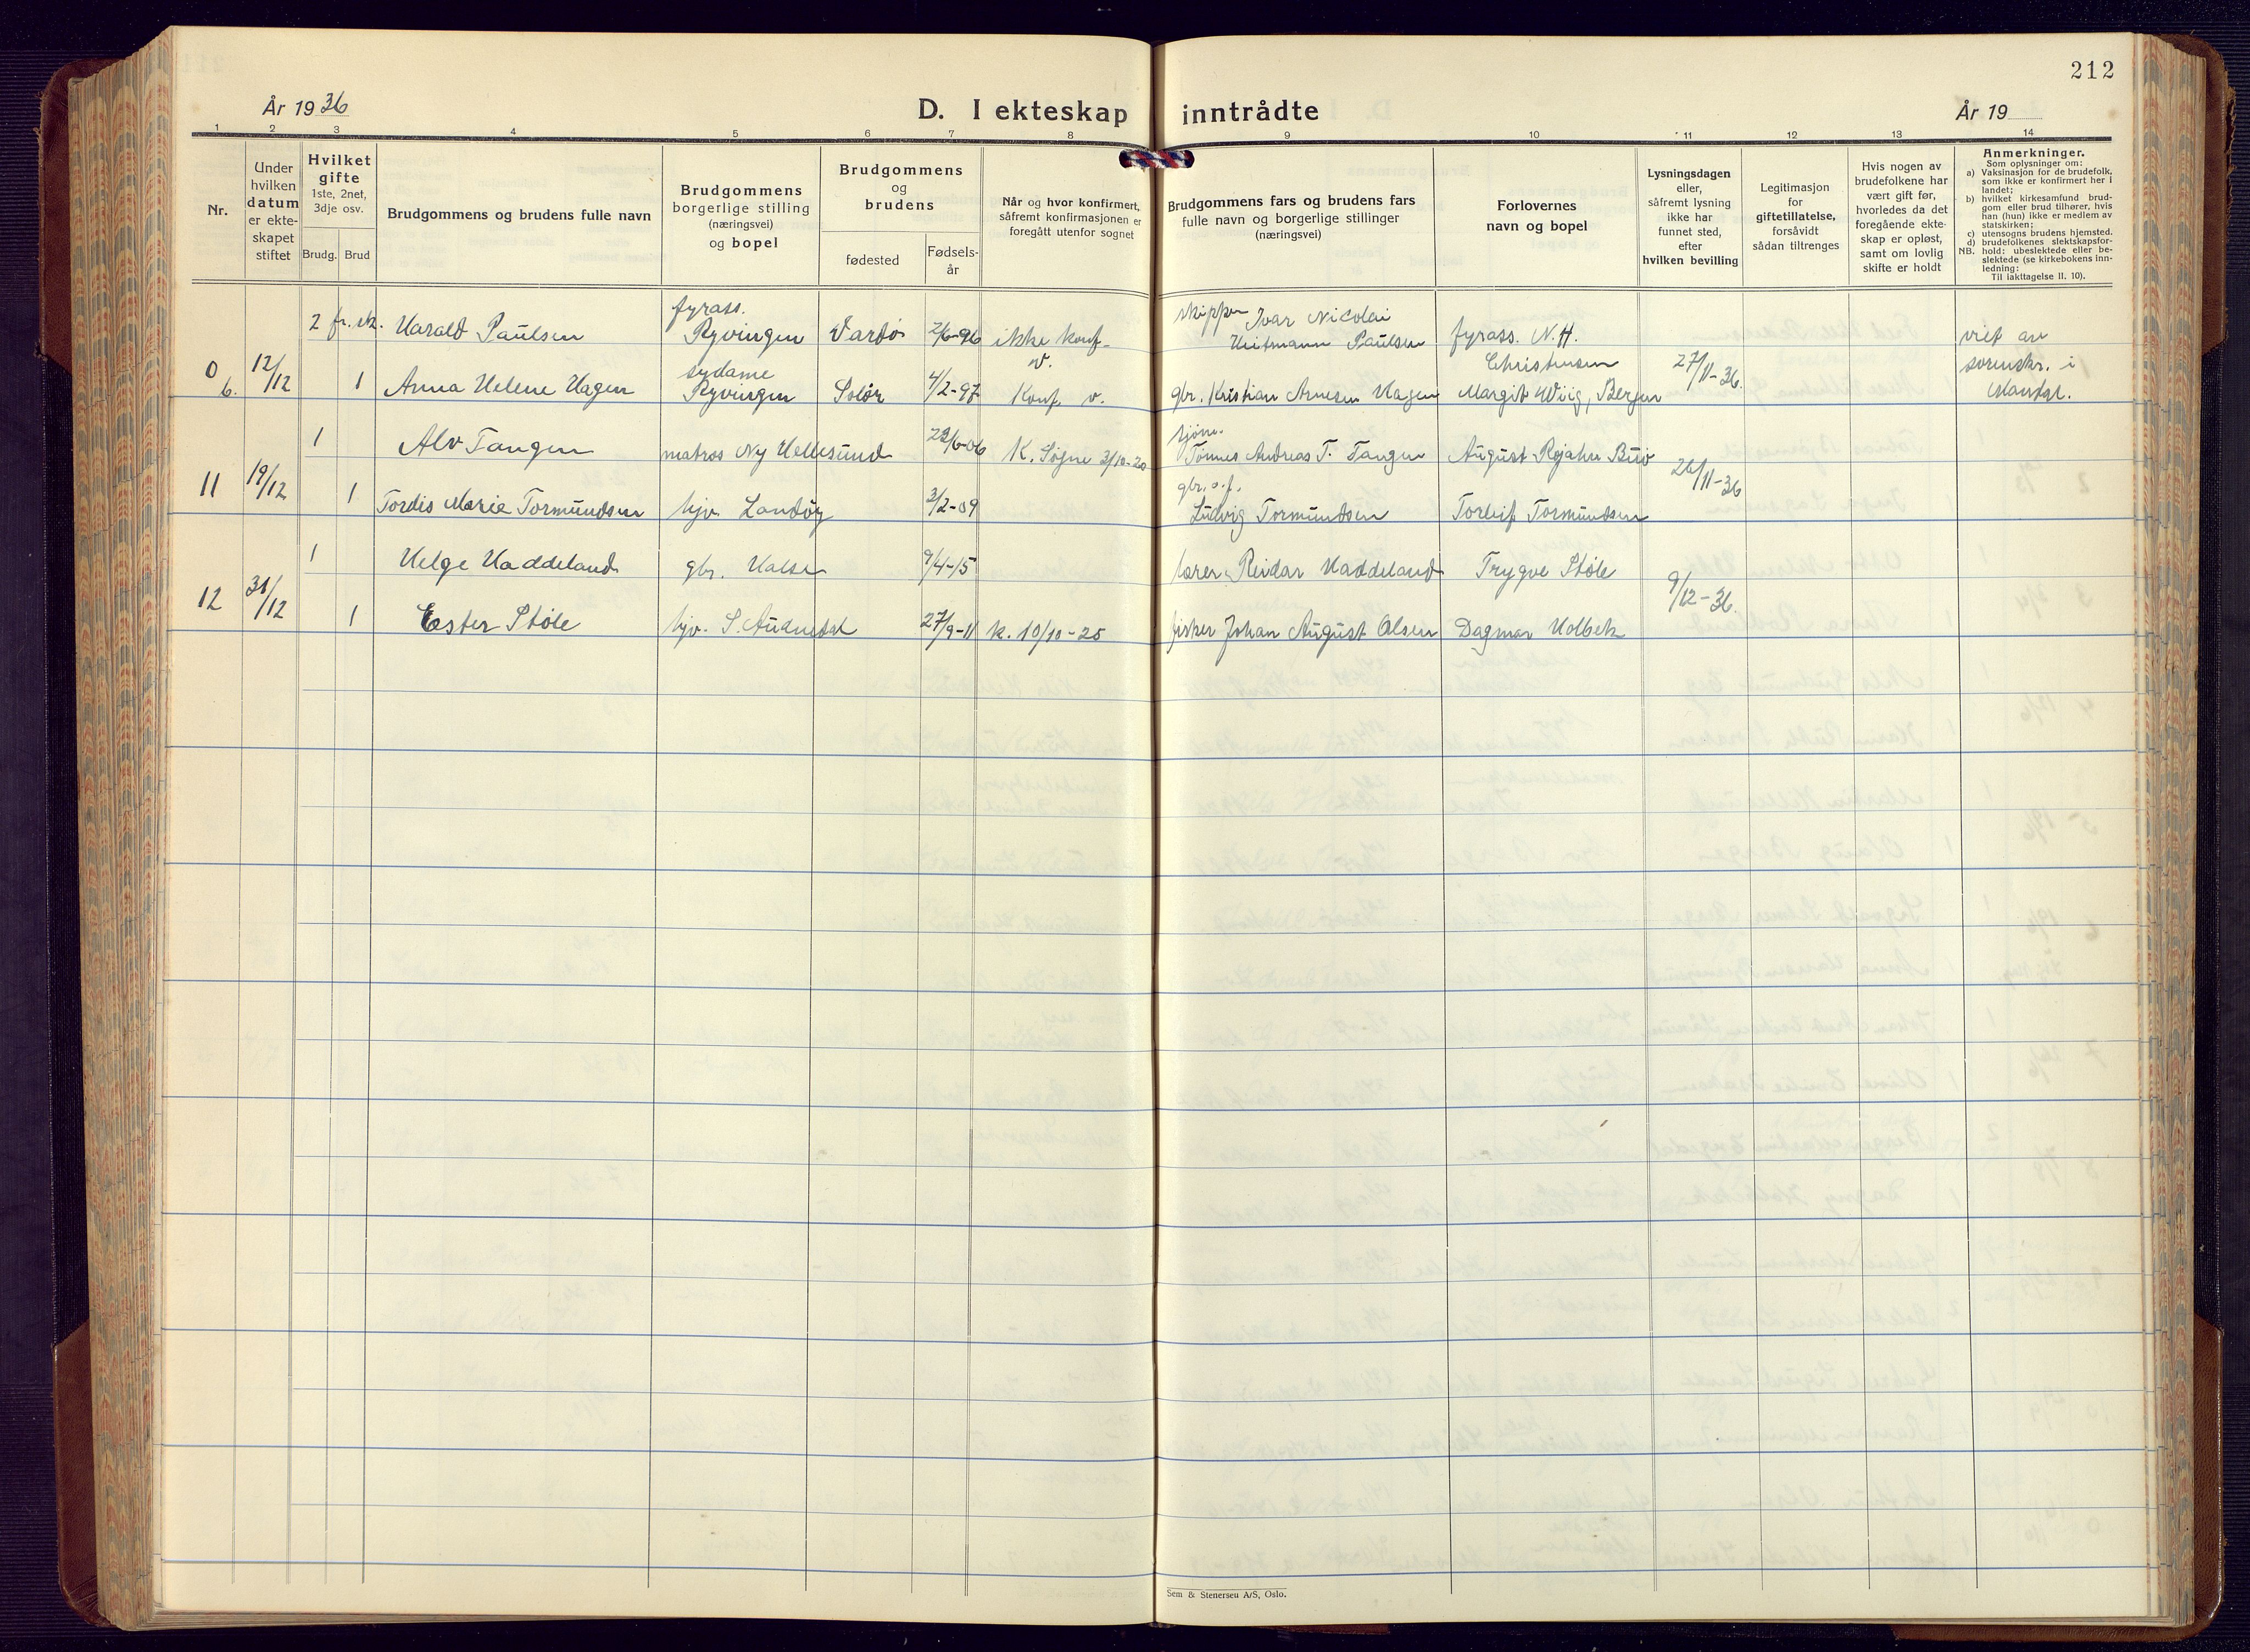 212
År 1936
D. I ekteskap inntrådte
År 19
1 2 3 4 5 6 7 8 9 10 11 12 13 14
Nr.
Under
hvilken
datum
er ekte-
skapet
stiftet
Hvilket
gifte
1ste, 2net,
3dje osv.
Brudg. Brud
Brudgommens og brudens fulle navn
Brudgommens
borgerlige stilling
(næringsvei)
og bopel
Brudgommens
og
brudens
fødested
Fødsels-
år
Når og hvor konfirmert,
såfremt konfirmasjonen er
foregått utenfor sognet
Brudgommens fars og brudens fars
fulle navn og borgerlige stillinger
(næringsvei)
Forlovernes
navn og bopel
Lysningsdagen
eller,
såfremt lysning
ikke har
funnet sted,
efter
hvilken bevilling
Legitimasjon
for
giftetillatelse,
forsåvidt
sådan tiltrenges
Hvis nogen av
brudefolkene har
vært gift før,
hvorledes da det
foregående ekte-
skap er opløst,
samt om lovlig
skifte er holdt
Anmerkninger.
Som oplysninger om:
a) Vaksinasjon for de brudefolk,
som ikke er konfirmert her i
landet;
b) hvilket kirkesamfund brud-
gom eller brud tilhører, hvis
han (hun) ikke er medlem av
statskirken;
c) utensogns brudens hjemsted.
d) brudefolkenes slektskapsfor-
NB. hold: ubeslektede eller be-
slektede (se kirkebokens inn-
ledning:
Til iakttagelse II. 10).
0 b. 12/12
2 fr. sk. Harald Paulsen fyrass. Ryvingen Vardø 2/6-96 ikke konf. v. skipper Ivar Nicolai Heitmann Paulsen fyrass. N. H. Christensen 27/11-36. viet av sorenskr. i Mandal.
1 Anna Helene Hagen sydame Ryvingen Solør 4/2-97 Konf. v. gbr. Kristian Arnesen Hagen Margit Wiig, Bergen
11 19/12
1 Alv Tangen matros Ny Hellesund 22/6-06 K. Søgne 3/10-20 sjøm. Tønnes Andreas T. Tangen August Rojahn Buø 26/11-36
1 Tordis Marie Tormundsen hjv. Landøy 3/2-09 gbr. o. f. Ludvig Tormundsen Torleif Tormundsen
12 31/12
1 Helge Haddeland gbr. Halse 9/4-15 lærer Reidar Haddeland Trygve Støle 9/12-36.
1 Ester Støle hjv. S. Audnedal 27/9-11 K. 10/10-25 fisker Johan August Olsen Dagmar Holbek
Sem & Stenersen A/S, Oslo.